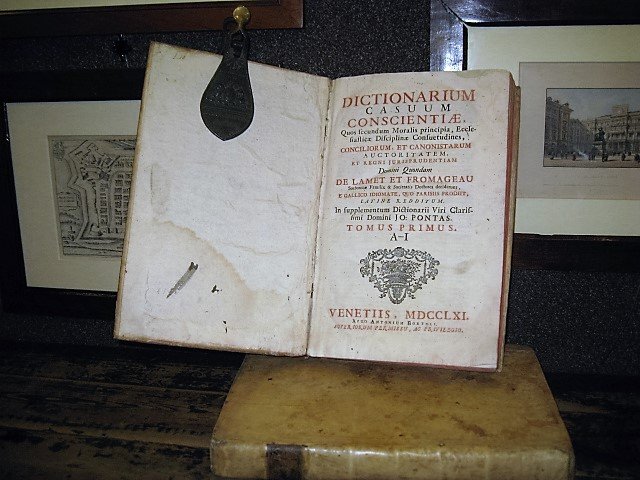 DICTIONARIUM
CASUUM
CONSCIENTIÆ,
Quos secundum Moralis principia, Eccle-
siasticæ Disciplinæ Consuetudines,
CONCILIORUM, ET CANONISTARUM
AUCTORITATEM,
ET REGNI JURISPRUDENTIAM
Domini Quondam
DE LAMET ET FROMAGEAU
Sorbonicæ Familiæ & Societatis Doctores deciderunt,
E GALLICO IDIOMATE, QUO PARISIIS PRODIIT,
LATINE REDDITUM.
In supplementum Dictionarii Viri Claris-
simi Domini JO: PONTAS.
TOMUS PRIMUS.
A-I
VENETIIS, MDCCLXI.
Apud Antonium Bortoli.
SUPERIORUM PERMISSU, AC PRIVILEGIO.